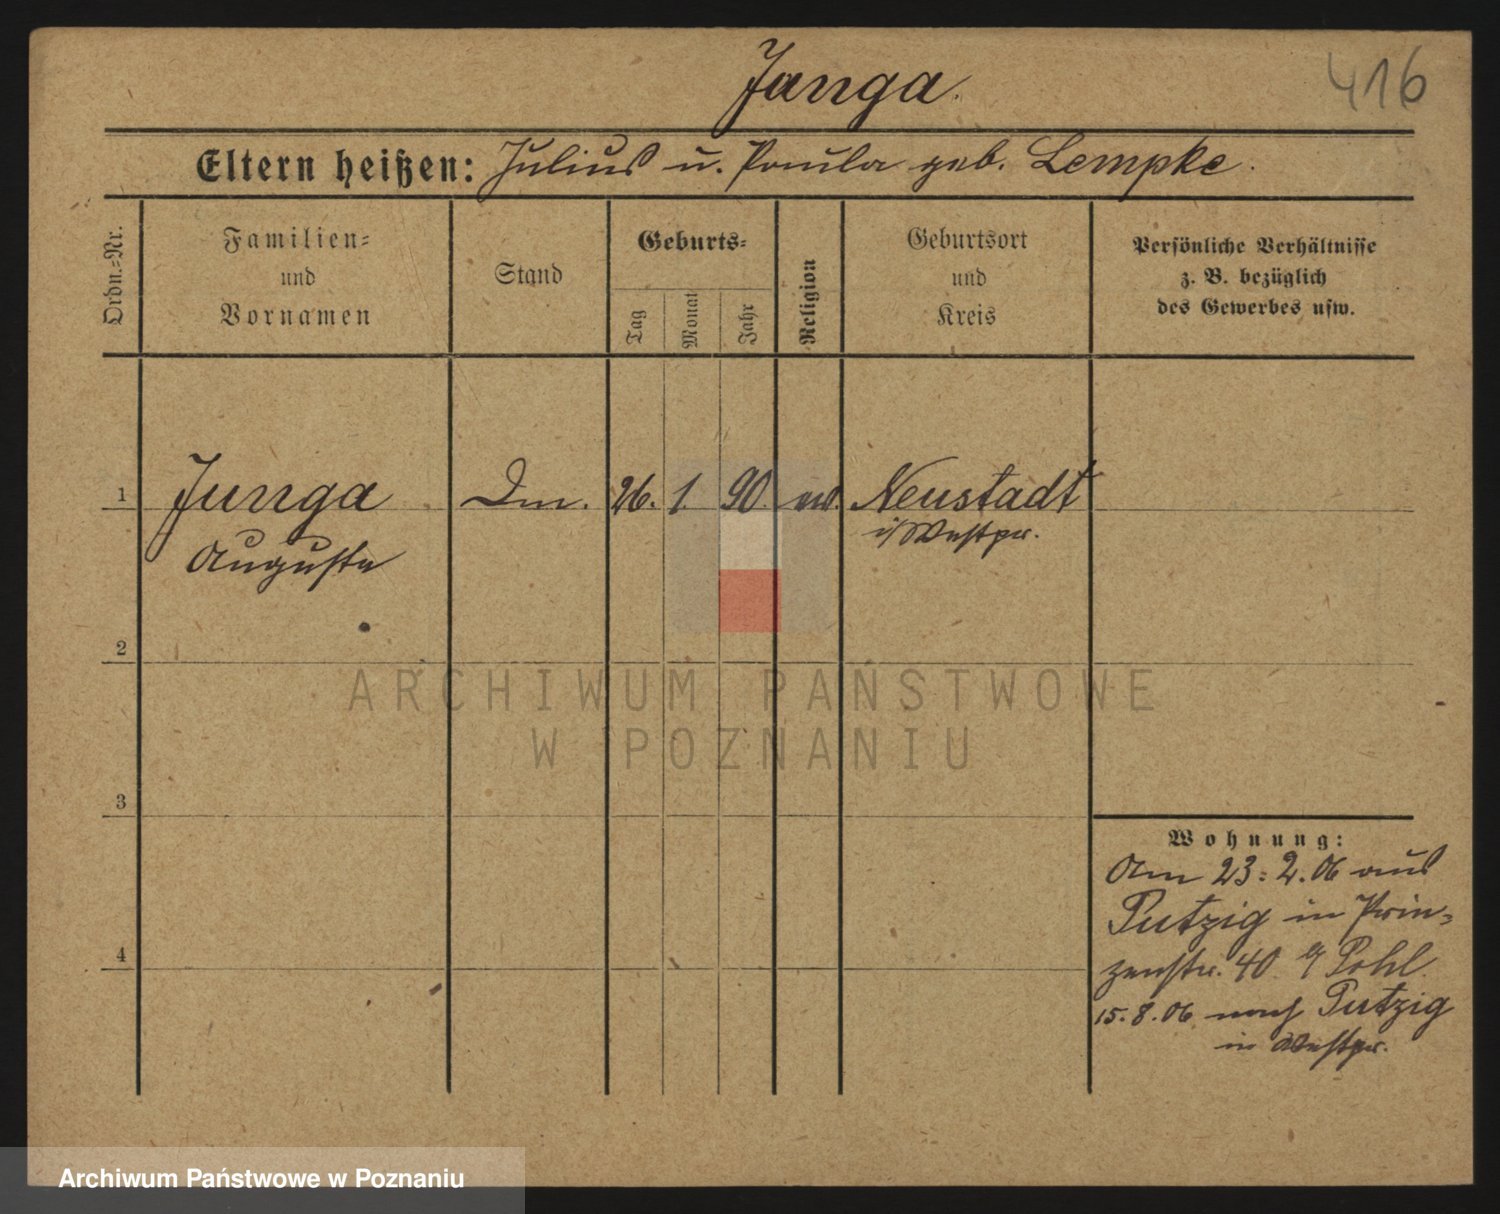 Janga.
416
Eltern heißen: Julius u. Paula geb. Lempke.
Ordn.-Nr.
Familien-
und
Vornamen
Stand
Geburts-
Tag
Monat
Jahr
Religion
Geburtsort
und
Kreis
Persönliche Verhältnisse
z. B. bezüglich
des Gewerbes usw.
1 Janga 26. 1. 90. Neustadt
Auguste i/Westpr.
2
ARCHIWUM PAŃSTWOWE
W POZNANIU
3
Wohnung:
Am 23.2.06 aus
Putzig in Prin-
zenstr. 40 Pohl.
4
15.8.06 nach Putzig
in Westpr.
Archiwum Państwowe w Poznaniu